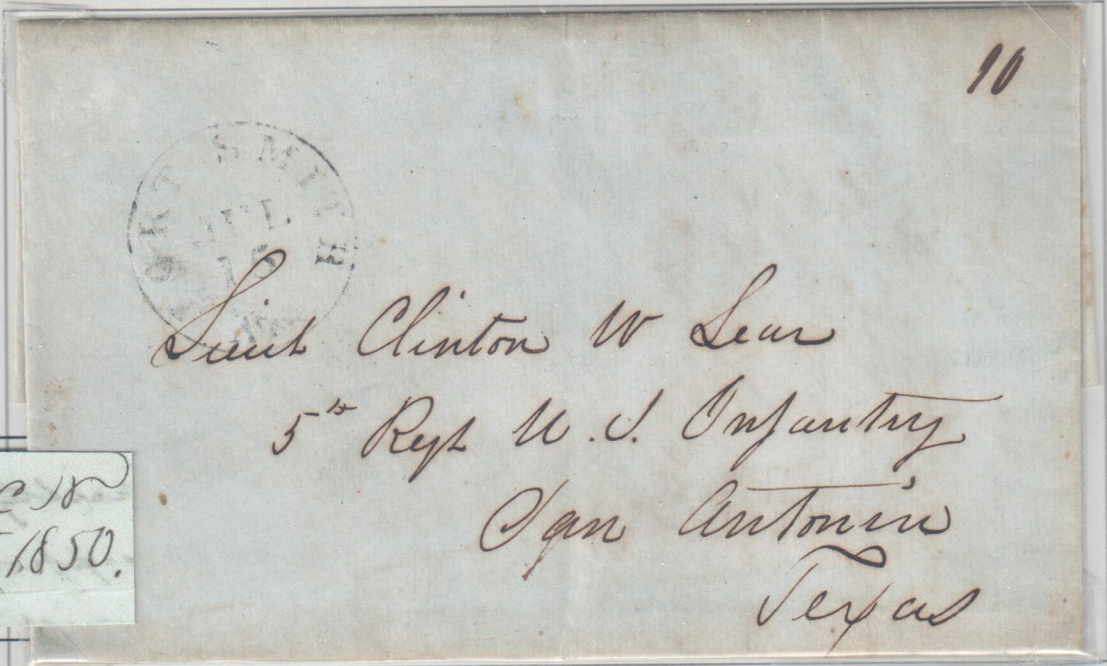 10
FORT SMITH
JUL
15
Lieut Clinton W Lear
5th Regt U.S. Infantry
San Antonio
Texas
18
1850.